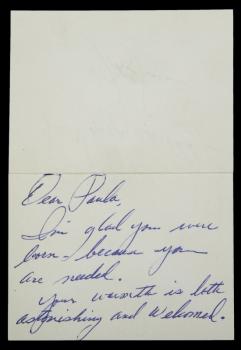 Dear Paula,
I'm glad you were
born - because you
are needed.
Your warmth is both
astonishing and welcomed.